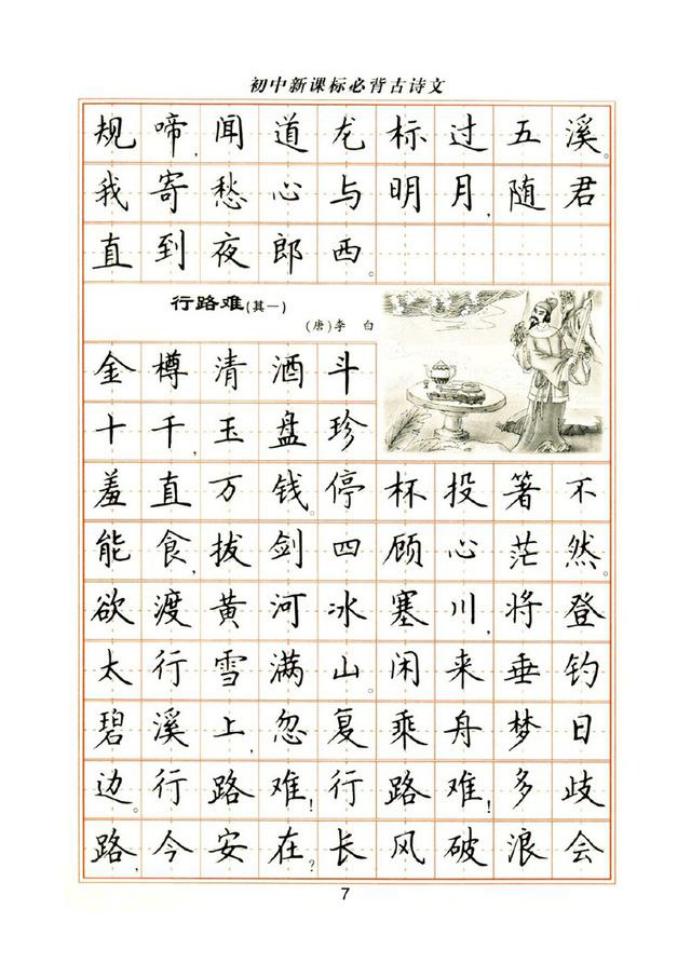 初中新课标必背古诗文
规啼,闻道龙标过五溪。
我寄愁心与明月,随君
直到夜郎西。
行路难(其一)
(唐)李 白
金樽清酒斗
十千,玉盘珍
羞直万钱。停杯投箸不
能食,拔剑四顾心茫然。
欲渡黄河冰塞川,将登
太行雪满山。闲来垂钓
碧溪上,忽复乘舟梦日
边。行路难!行路难!多歧
路,今安在?长风破浪会
7